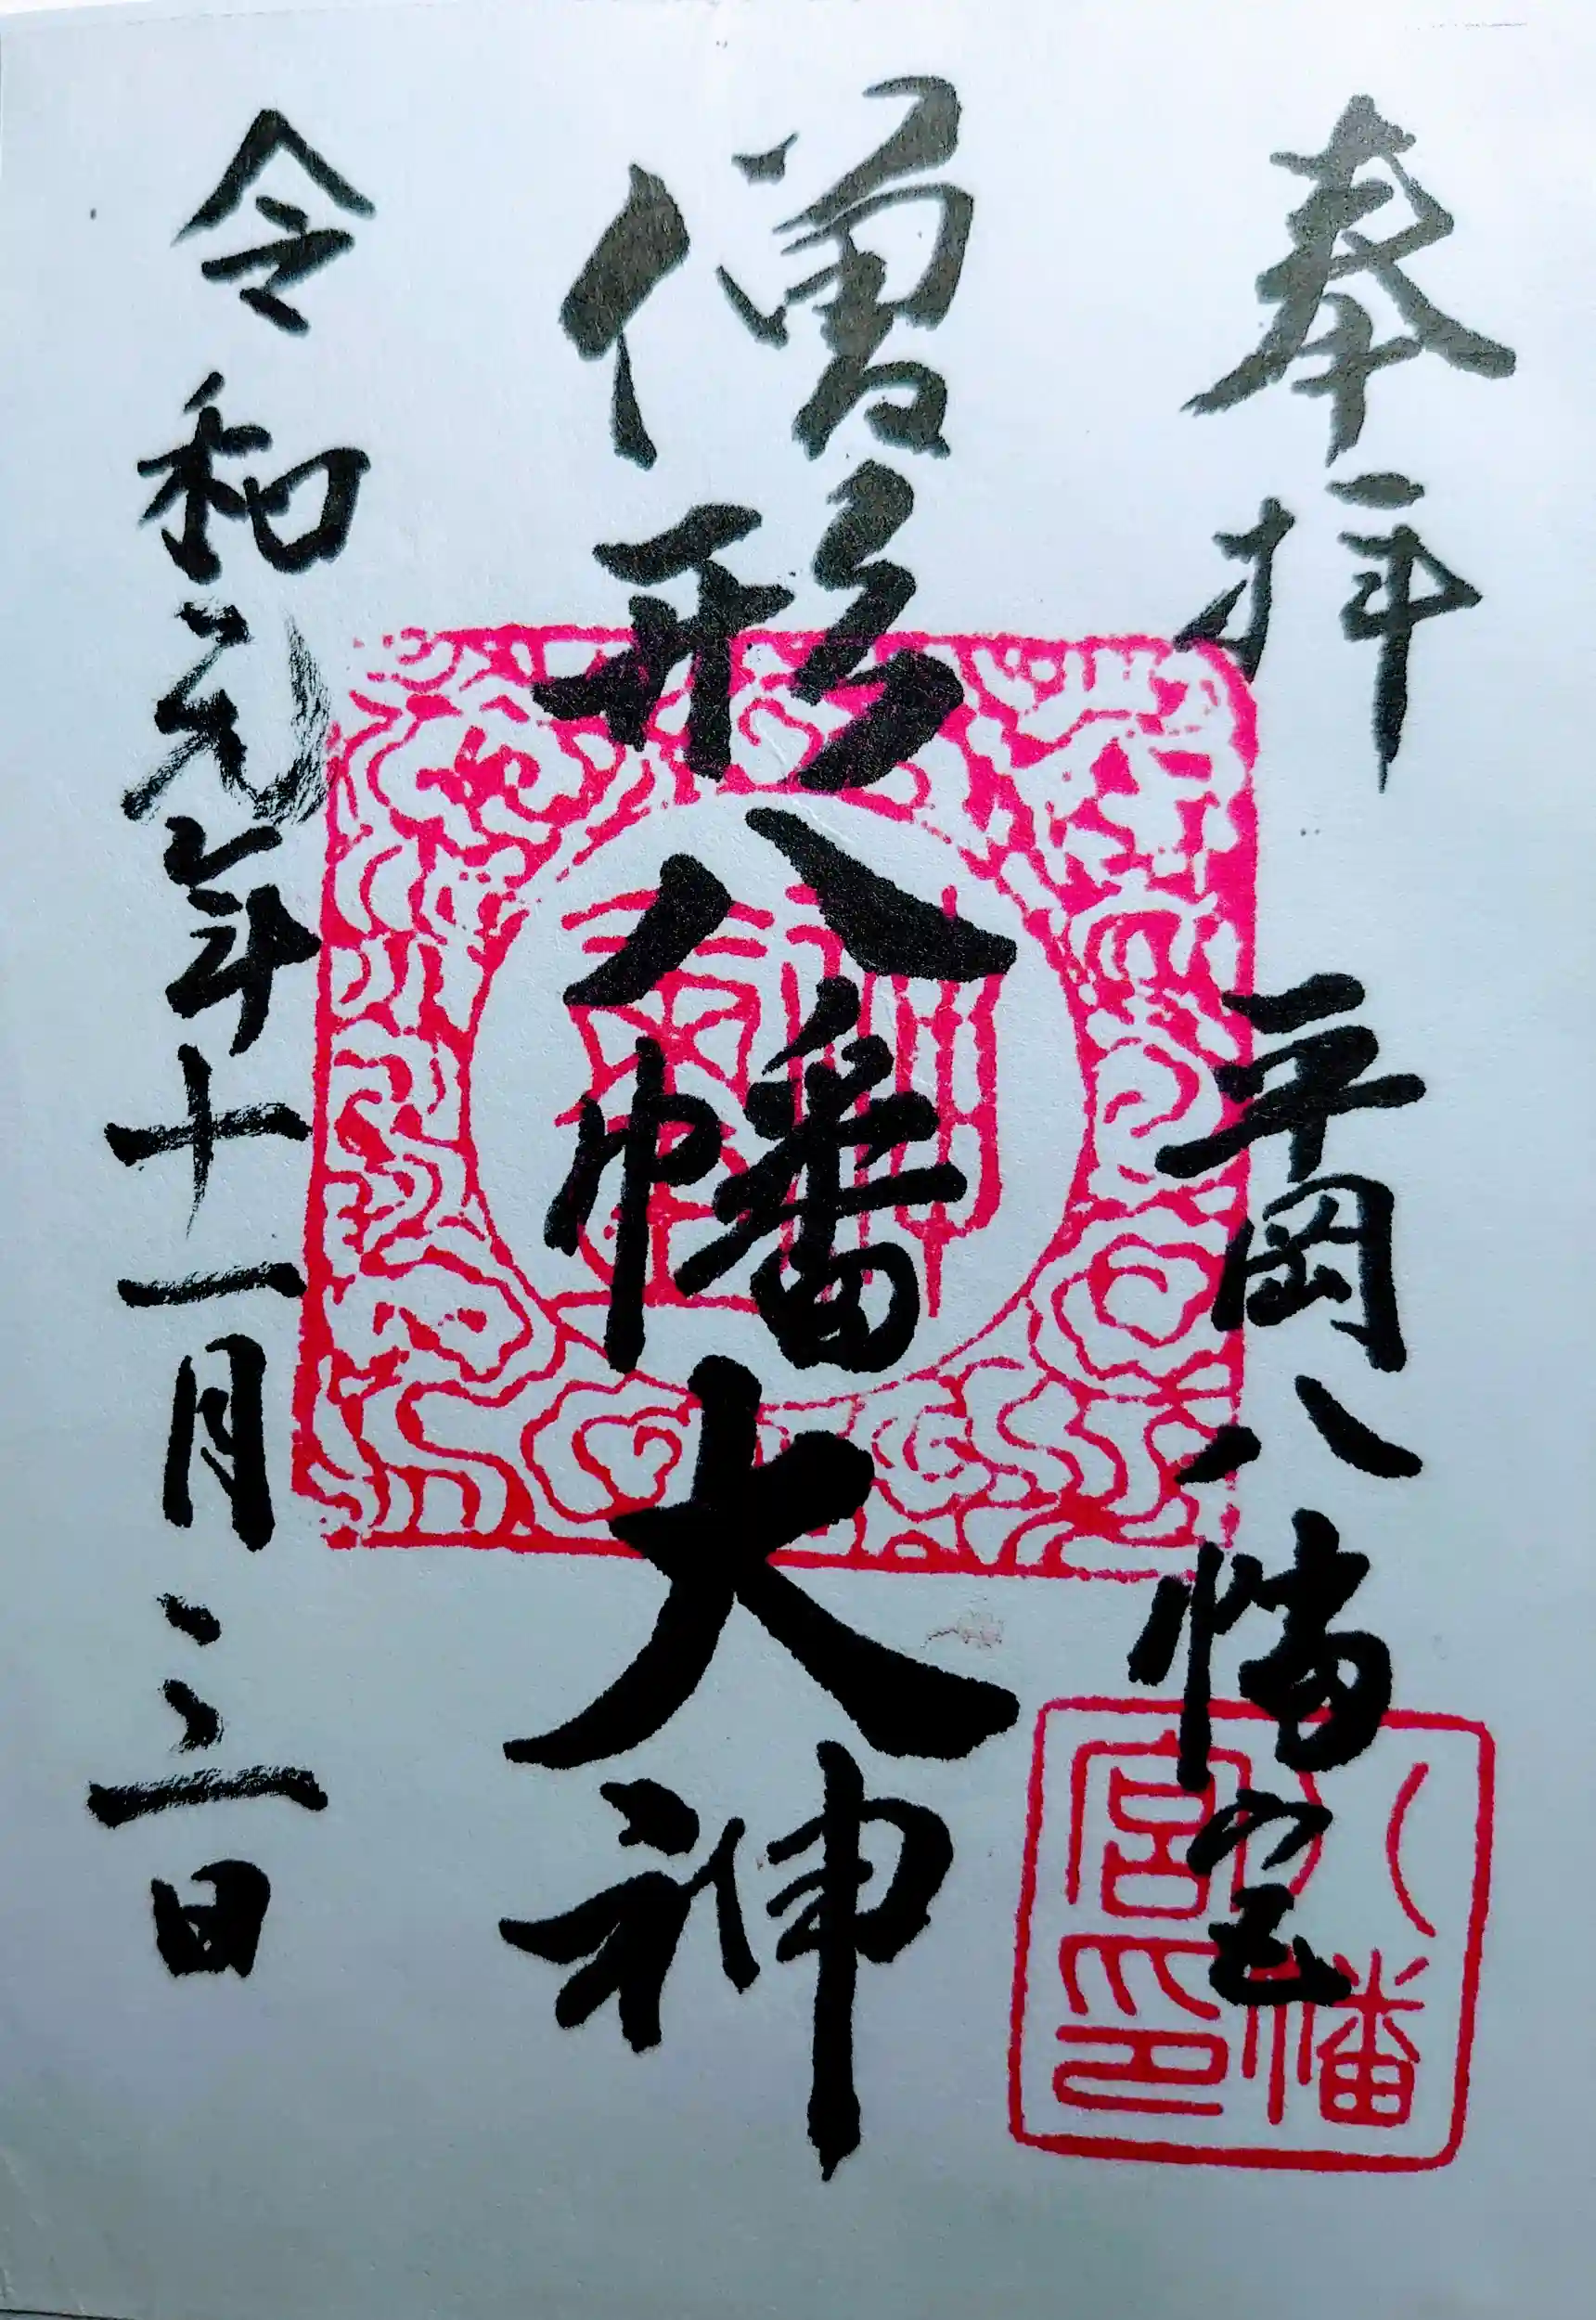 奉拝
平岡八幡宮
僧形八幡大神
令和元年十一月三日
八幡
宮印